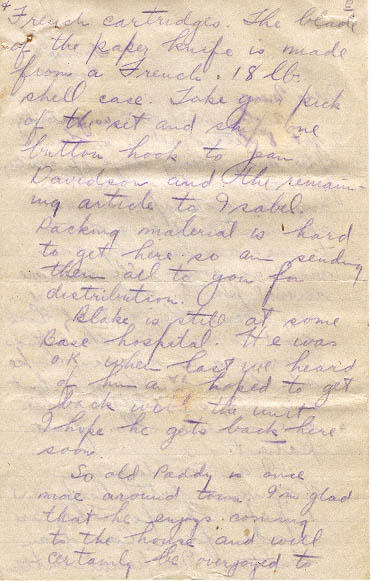 2
+ French cartridges. The blade
of the paper knife is made
from a French. 18 lb.
shell case. Take your pick
of the set and one
button hook to Jean
Davidson and the remain-
ing article to Isabel.
Packing material is hard
to get here so am sending
them all to you for
distribution.
Blake is still at some
Base hospital. He was
O.K. when last we heard
of him and hoped to get
back with the unit.
I hope he gets back here
soon.
So old Paddy is once
more around town. I'm glad
that he enjoys coming
to the house and will
certainly be overjoyed to